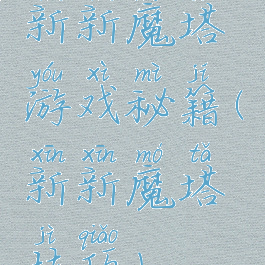 新新魔塔
yóu xì mì jí
游戏秘籍(
xīn xīn mó tǎ
新新魔塔
jì qiǎo
技巧)